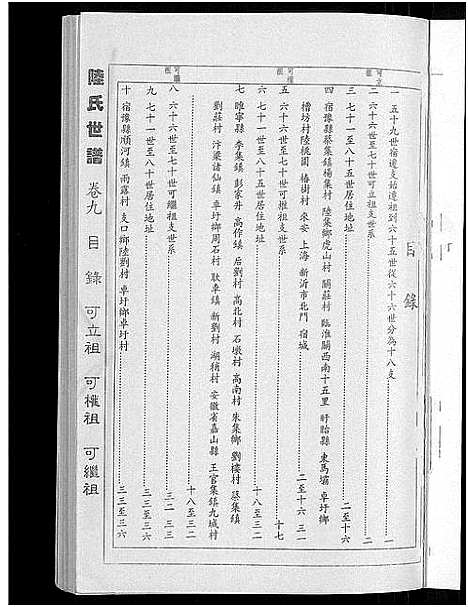 目錄
可立祖
一 五十九世宿遷支始遷祖到六十五世從六十六世分為十八支
二 六十六世至七十世可立祖支世系 二
三 七十一世至八十五世居住地址 二至十六
四 宿豫縣蔡集鎮楊集村 陸集鄉虎山村 關莊村 臨淮關西南十五里 盱眙縣 東馬壩 卓圩鄉
槽坊村陸桃園 椿樹村 來安 上海 新沂市北門 宿城 二至十六 三一
可權祖
五 六十六世至七十世可權祖支世系 十七
六 七十一世至八十五世居住地址 十八至三二
七 睢寧縣 李集鎮 彭家井 高作鎮 后劉村 高北村 石墩村 高南村 朱集鄉 劉樓村 蔡集鎮
劉莊村 汴梁諸仙鎮 卓圩鄉周石村 耿車鎮 新劉村 湖稍村 安徽省嘉山縣 王官集鎮九城村
十八至三二
可繼祖
八 六十六世至七十世可繼祖支世系 三二 三三
九 七十一世至八十世居住地址 三三至三六
十 宿豫縣順河鎮 雨露村 支口鄉陸劉村 卓圩鄉卓圩村 三三至三六
陸氏世譜 卷九 目錄 可立祖 可權祖 可繼祖